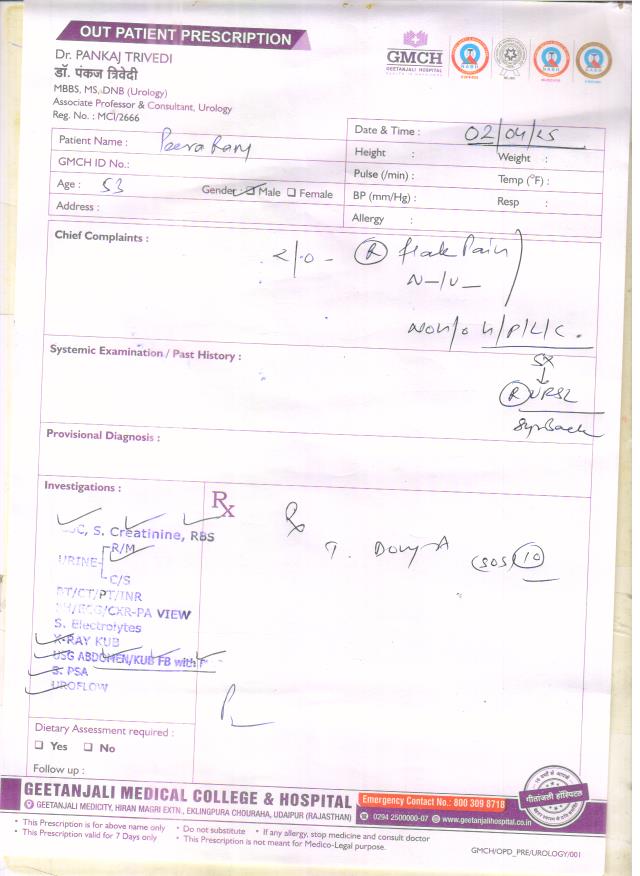 OUT PATIENT PRESCRIPTION
Dr. PANKAJ TRIVEDI
डॉ. पंकज त्रिवेदी
MBBS, MS, DNB (Urology)
Associate Professor & Consultant, Urology
Reg. No. : MCI/2666
GMCH
GEETANJALI HOSPITAL
Patient Name :
GMCH ID No.:
Age : 53 Gender : Male Female
Address :
Date & Time : 02/04/25
Height : Weight :
Pulse (/min) : Temp (°F) :
BP (mm/Hg) : Resp :
Allergy :
Chief Complaints :
c/o - R flank Pain
N-/V-
Systemic Examination / Past History :
R URSL
Provisional Diagnosis :
Investigations :
Rx
CBC, S. Creatinine, RBS
URINE R/M
C/S
BT/CT/PT/INR
VIEW
S. Electrolytes
X-RAY KUB
USG ABDOMEN/KUB FB with
S. PSA
UROFLOW
Rx
T. (SOS) 10
Dietary Assessment required :
Yes No
Follow up :
GEETANJALI MEDICAL COLLEGE & HOSPITAL
GEETANJALI MEDICITY, HIRAN MAGRI EXTN., EKLINGPURA CHOURAHA, UDAIPUR (RAJASTHAN)
Emergency Contact No.: 800 309 8718
0294 2500000-07 www.geetanjalihospital.co.in
गीतांजली हॉस्पिटल
• This Prescription is for above name only • Do not substitute • If any allergy, stop medicine and consult doctor
• This Prescription valid for 7 Days only • This Prescription is not meant for Medico-Legal purpose.
GMCH/OPD_PRE/UROLOGY/001